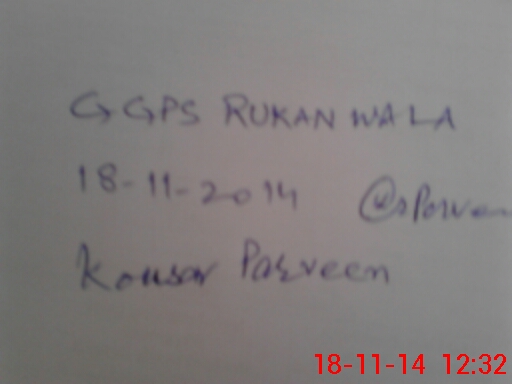 GGPS RUKAN WALA
18-11-2014
Kousar Parveen
18-11-14 12:32